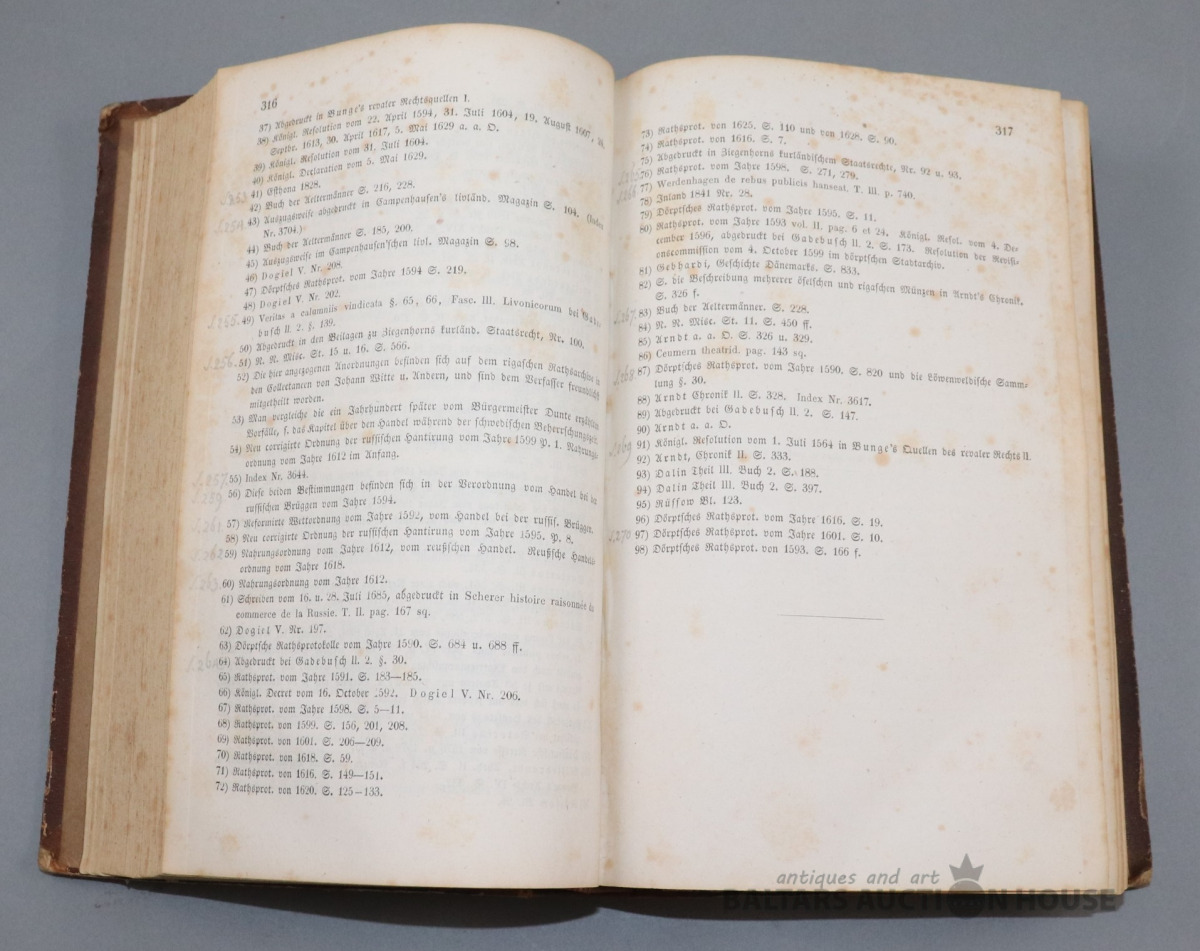 316
37) Abgedruckt in Bunge's revaler Rechtsquellen I.
38) Königl. Resolution vom 22. April 1594, 31. Juli 1604, 19. August 1607,
Septbr. 1613, 30. April 1617, 5. Mai 1629 a. a. O.
39) Königl. Resolution vom 31. Juli 1604.
40) Königl. Declaration vom 5. Mai 1629.
41) Esthona 1828.
42) Buch der Aeltermänner S. 216, 228.
43) Auszugsweise abgedruckt in Campenhausen's livländ. Magazin S. 104. (Index
Nr. 3704.)
44) Buch der Aeltermänner S. 185, 200.
45) Auszugsweise im Campenhausen'schen livl. Magazin S. 98.
46) Dogiel V. Nr. 208.
47) Dörptsches Rathsprot. vom Jahre 1594 S. 219.
48) Dogiel V. Nr. 202.
S.255. 49) Veritas a calumniis vindicata §. 65, 66, Fasc. III. Livonicorum bei Gade-
busch II. 2. §. 139.
50) Abgedruckt in den Beilagen zu Ziegenhorns kurländ. Staatsrecht, Nr. 100.
S.256. 51) N. N. Misc. St. 15 u. 16. S. 566.
52) Die hier angezogenen Anordnungen befinden sich auf dem rigaschen Rathsarchive in
den Collectaneen von Johann Witte u. Andern, und sind dem Verfasser freundlichst
mitgetheilt worden.
53) Man vergleiche die ein Jahrhundert später vom Bürgermeister Dunte erzählten
Vorfälle, s. das Kapitel über den Handel während der schwedischen Beherrschungszeit.
54) Neu corrigirte Ordnung der russischen Hantirung vom Jahre 1599 P. 1. Nahrungs-
ordnung vom Jahre 1612 im Anfang.
S.257. 55) Index Nr. 3644.
S.259 56) Diese beiden Bestimmungen befinden sich in der Verordnung vom Handel bei der
russischen Brüggen vom Jahre 1594.
S.261. 57) Reformirte Wettordnung vom Jahre 1592, vom Handel bei der russis. Brüggen.
58) Neu corrigirte Ordnung der russischen Hantirung vom Jahre 1595. P. 8.
S.262. 59) Nahrungsordnung vom Jahre 1612, vom reußischen Handel. Reußsche Handels-
ordnung vom Jahre 1618.
60) Nahrungsordnung vom Jahre 1612.
61) Schreiben vom 16. u. 28. Juli 1685, abgedruckt in Scherer histoire raisonnée du
commerce de la Russie. T. II. pag. 167 sq.
62) Dogiel V. Nr. 197.
63) Dörptsche Rathsprotokolle vom Jahre 1590. S. 684 u. 688 ff.
64) Abgedruckt bei Gadebusch II. 2. §. 30.
65) Rathsprot. vom Jahre 1591. S. 183—185.
66) Königl. Decret vom 16. October 1592. Dogiel V. Nr. 206.
67) Rathsprot. vom Jahre 1598. S. 5—11.
68) Rathsprot. von 1599. S. 156, 201, 208.
69) Rathsprot. von 1601. S. 206—209.
70) Rathsprot. von 1618. S. 59.
71) Rathsprot. von 1616. S. 149—151.
72) Rathsprot. von 1620. S. 125—133.
317
73) Rathsprot. von 1625. S. 110 und von 1628. S. 90.
74) Rathsprot. von 1616. S. 7.
75) Abgedruckt in Ziegenhorns kurländischem Staatsrechte, Nr. 92 u. 93.
76) Rathsprot. vom Jahre 1598. S. 271, 279.
77) Werdenhagen de rebus publicis hanseat. T. III. p. 740.
78) Inland 1841 Nr. 28.
79) Dörptsches Rathsprot. vom Jahre 1595. S. 11.
80) Rathsprot. vom Jahre 1593 vol. II. pag. 6 et 24. Königl. Resol. vom 4. De-
cember 1596, abgedruckt bei Gadebusch II. 2. S. 173. Resolution der Revisi-
onscommission vom 4. October 1599 im dörptschen Stadtarchiv.
81) Gebhardi, Geschichte Dänemarks. S. 833.
82) S. die Beschreibung mehrerer öselschen und rigaschen Münzen in Arndt's Chronik.
S. 326 f.
S.267. 83) Buch der Aeltermänner. S. 228.
84) N. N. Misc. St. 11. S. 450 ff.
85) Arndt a. a. O. S. 326 u. 329.
86) Ceumern theatrid. pag. 143 sq.
S.268 87) Dörptsches Rathsprot. vom Jahre 1590. S. 820 und die Löwenweldische Samm-
lung §. 30.
88) Arndt Chronik II. S. 328. Index Nr. 3617.
89) Abgedruckt bei Gadebusch II. 2. S. 147.
90) Arndt a. a. O.
S.269 91) Königl. Resolution vom 1. Juli 1564 in Bunge's Quellen des revaler Rechts II.
92) Arndt, Chronik II. S. 333.
93) Dalin Theil III. Buch 2. S. 188.
94) Dalin Theil III. Buch 2. S. 397.
95) Rüssow Bl. 123.
96) Dörptsches Rathsprot. vom Jahre 1616. S. 19.
S.270 97) Dörptsches Rathsprot. vom Jahre 1601. S. 10.
98) Dörptsches Rathsprot. von 1593. S. 166 f.
antiques and art
BALTARS AUCTION HOUSE